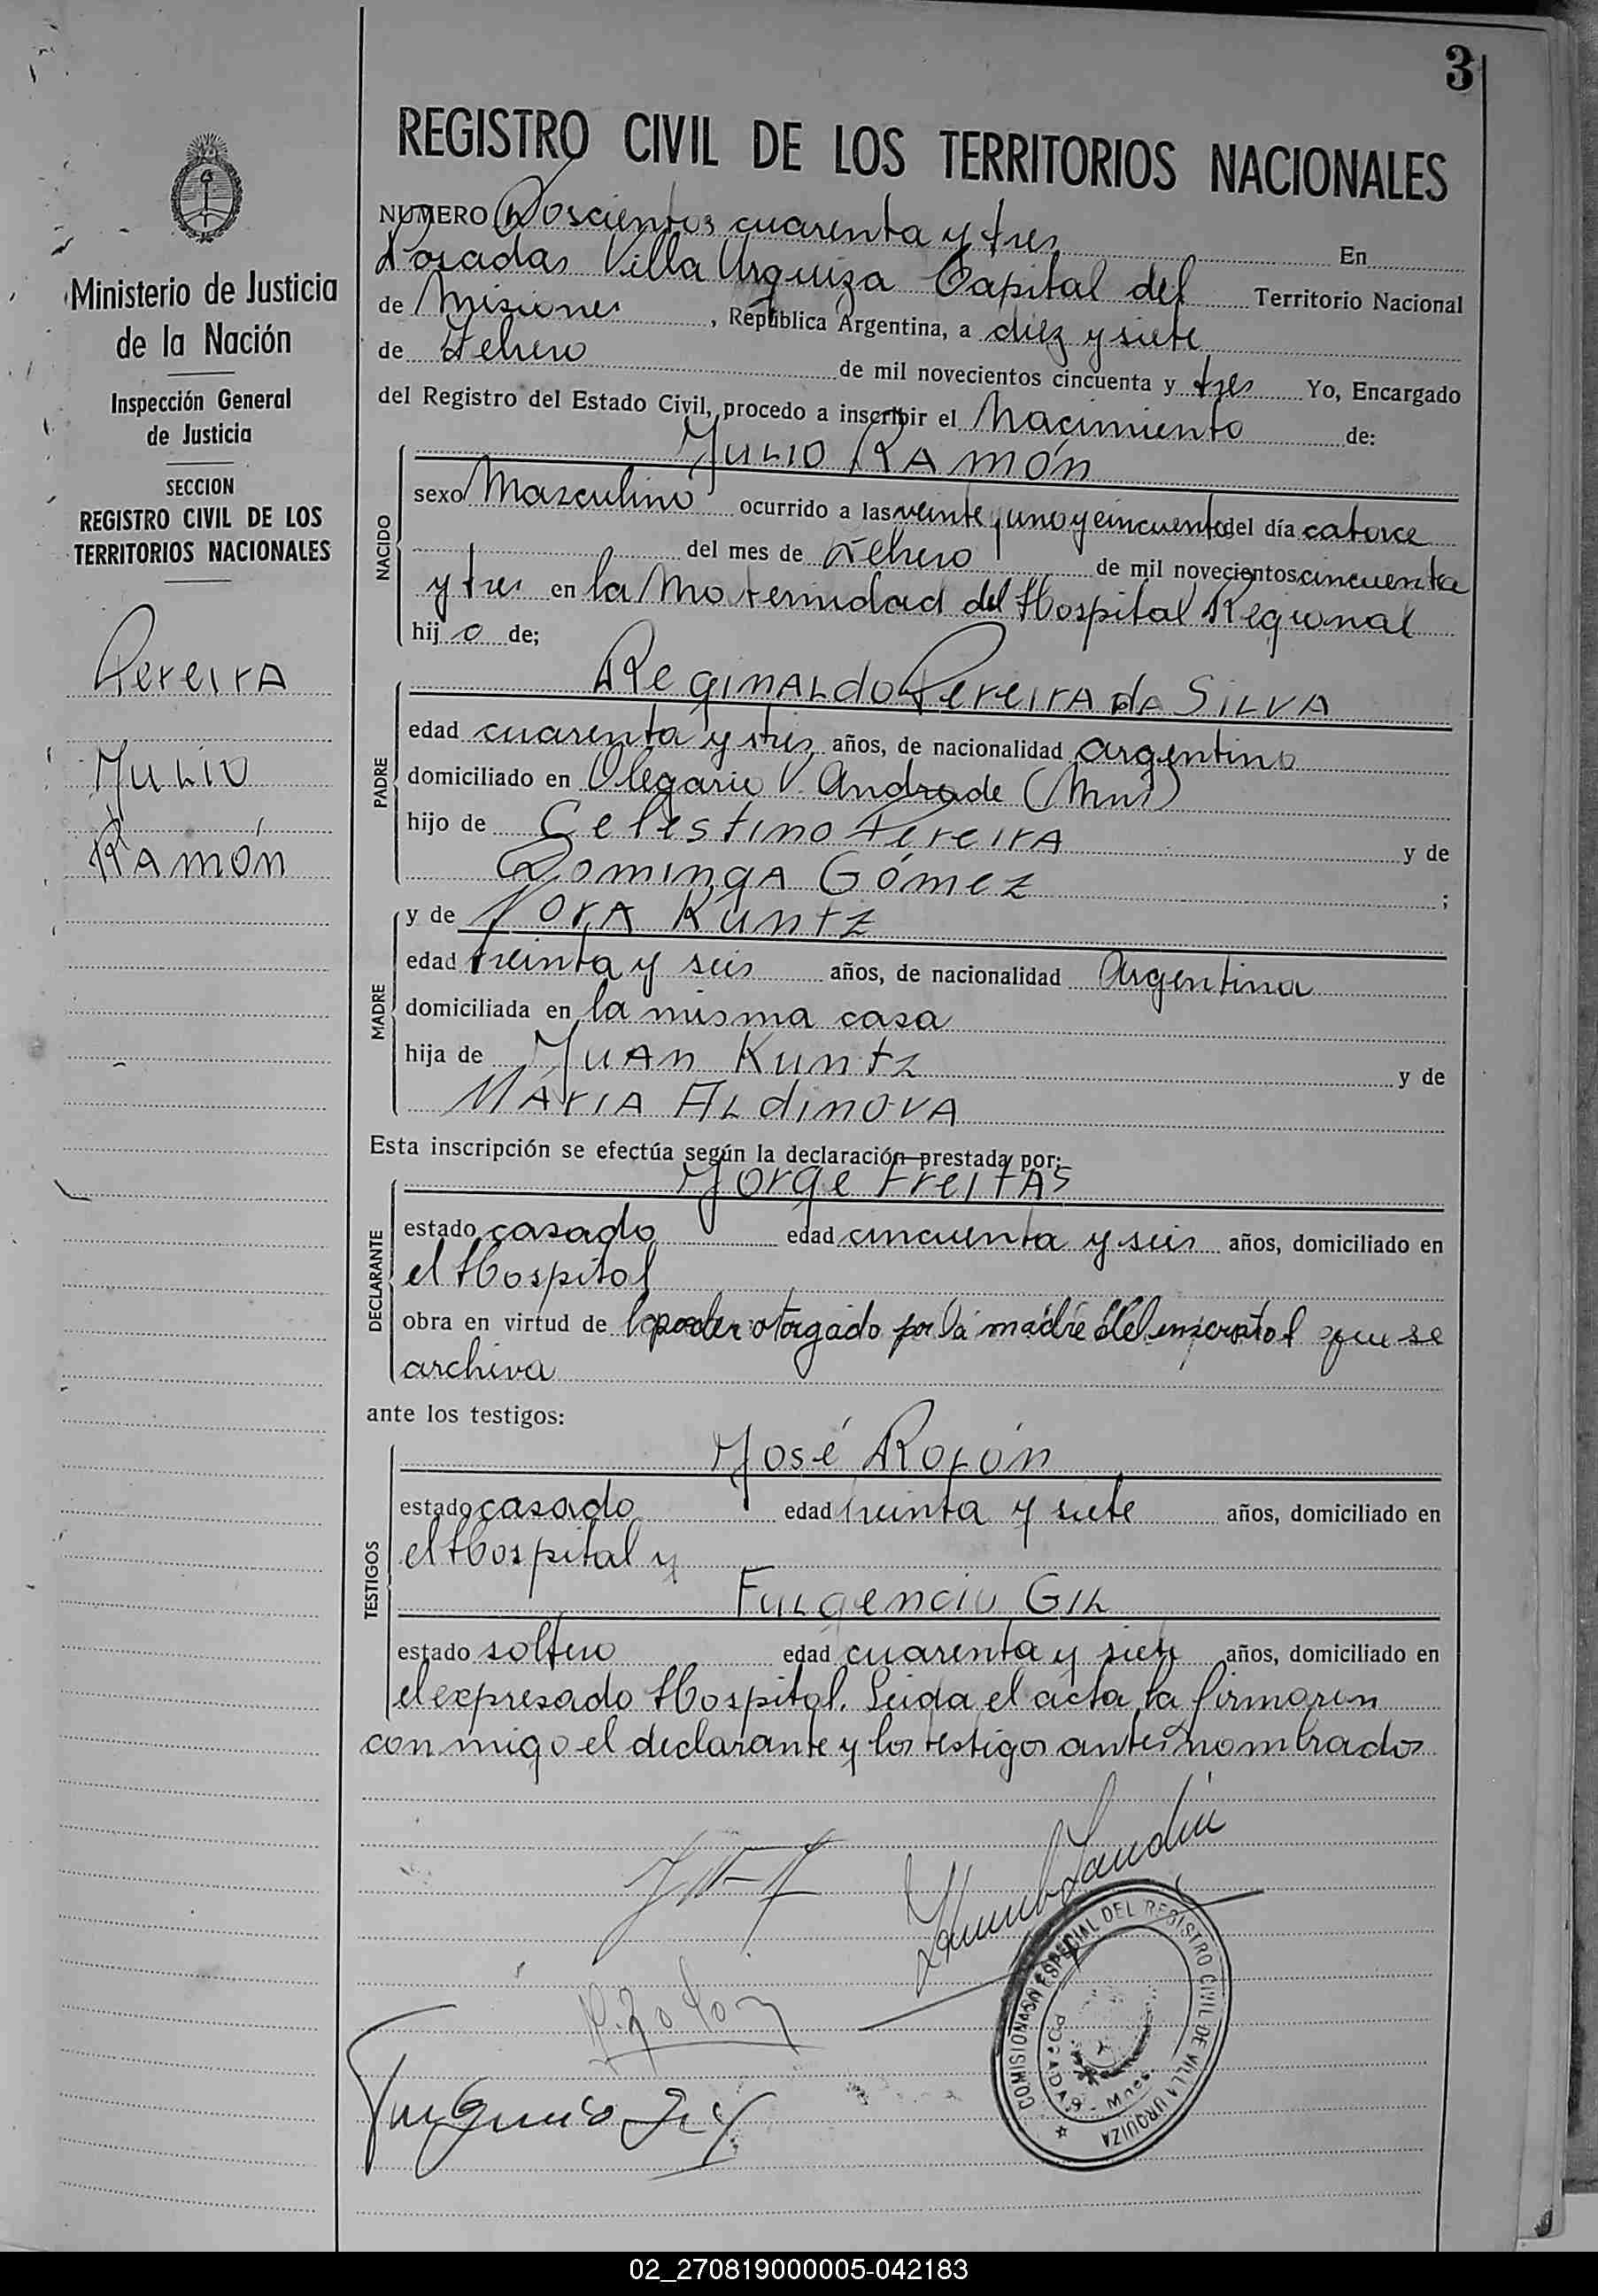 3
REGISTRO CIVIL DE LOS TERRITORIOS NACIONALES
Ministerio de Justicia
de la Nación
Inspección General
de Justicia
SECCION
REGISTRO CIVIL DE LOS
TERRITORIOS NACIONALES
Pereira
Julio
Ramón
NUMERO Doscientos cuarenta y tres En
Posadas Villa Urquiza Capital del Territorio Nacional
de Misiones, República Argentina, a diez y siete
de Febrero de mil novecientos cincuenta y tres Yo, Encargado
del Registro del Estado Civil, procedo a inscribir el Nacimiento de:
NACIDO
JULIO RAMÓN
sexo Masculino ocurrido a las veinte y uno y cincuenta del día catorce
del mes de Febrero de mil novecientos cincuenta
y tres en la Maternidad del Hospital Regional
hijo de;
PADRE
Reginaldo Pereira da Silva
edad cuarenta y tres años, de nacionalidad argentino
domiciliado en Olegario V. Andrade (Mns)
hijo de Celestino Pereira y de
Dominga Gómez ;
MADRE
y de Nora Kuntz
edad treinta y seis años, de nacionalidad Argentina
domiciliada en la misma casa
hija de Juan Kuntz y de
María Aldinova
Esta inscripción se efectúa según la declaración prestada por:
DECLARANTE
Jorge Freitas
estado casado edad cincuenta y seis años, domiciliado en
el Hospital
obra en virtud de poder otorgado por la madre del inscripto que se
archiva
ante los testigos:
TESTIGOS
José Rolón
estado casado edad treinta y siete años, domiciliado en
el Hospital y
Fulgencio Gil
estado soltero edad cuarenta y siete años, domiciliado en
el expresado Hospital. Leida el acta la firmaron
conmigo el declarante y los testigos antes nombrados
Fulgencio Gil
COMISIONADO ESPECIAL DEL REGISTRO CIVIL DE VILLA URQUIZA
02_270819000005-042183